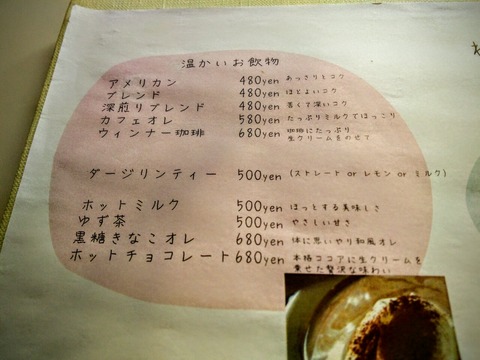 温かいお飲物
アメリカン 480yen あっさりとコク
ブレンド 480yen ほどよいコク
深煎りブレンド 480yen 苦くて深いコク
カフェオレ 580yen たっぷりミルクでほっこり
ウィンナー珈琲 680yen 珈琲にたっぷり
生クリームをのせて
ダージリンティー 500yen (ストレート or レモン or ミルク)
ホットミルク 500yen ほっとする美味しさ
ゆず茶 500yen やさしい甘さ
黒糖きなこオレ 680yen 体に思いやり和風オレ
ホットチョコレート 680yen 本格ココアに生クリームを
乗せた贅沢な味わい